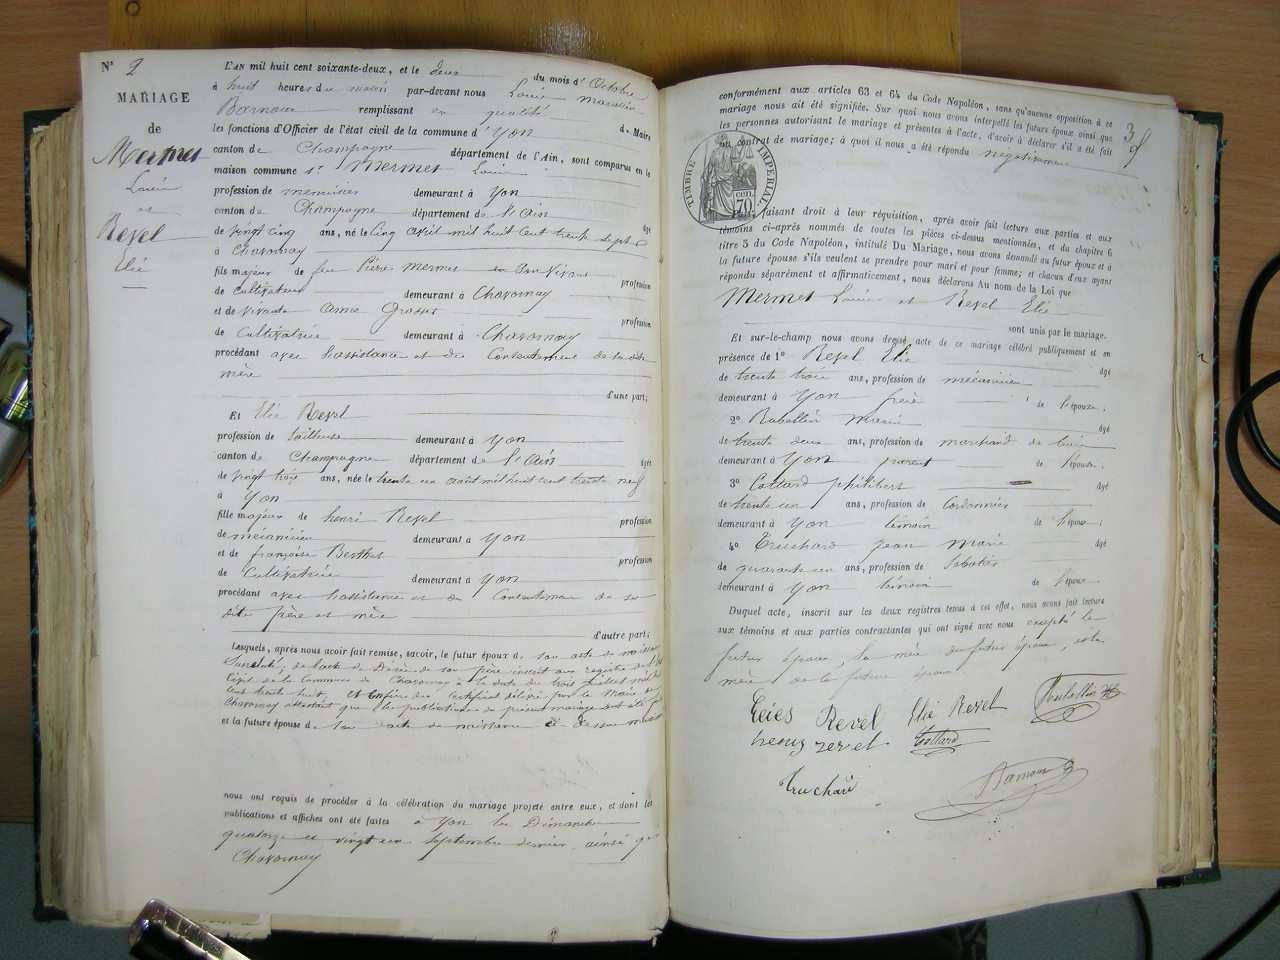 N° 2
MARIAGE
de
Mermet
Louis
et
Revel
Elié
L'AN mil huit cent soixante-deux, et le deux du mois d'Octobre
à huit heures du matin par-devant nous Louis
remplissant en qualité de Maire
les fonctions d'Officier de l'état civil de la commune d'Yon
canton de Champagne département de l'Ain, sont comparus en la
maison commune Sr Mermet Louis
profession de menuisier demeurant à Yon
canton de Champagne département de l'Ain âgé
de vingt cinq ans, né le cinq avril mil huit cent trente sept
à Chavornay
fils majeur de feu Pierre Mermet en son vivant profession
de cultivateur demeurant à Chavornay
et de vivante profession
de Cultivatrice demeurant à Chavornay
procédant avec l'assistance et du Consentement de sa dite
mère
d'une part;
Et Elié Revel
profession de tailleuse demeurant à Yon
canton de Champagne département de l'Ain âgée
de vingt trois ans, née le trente un août mil huit cent trente neuf
à Yon
fille majeur de henri Revel profession
de mécanicien demeurant à Yon
et de françoise Berthet profession
de Cultivatrice demeurant à Yon
procédant avec l'assistance et du Consentement de ses
dits père et mère
d'autre part;
Lesquels, après nous avoir fait remise, savoir, le futur époux d. son acte de naissance
de l'acte de Décès de son père inscrit aux registres de l'état
Civil de la Commune de Chavornay à la date du trois juillet mil huit
cent trente huit, et enfin du certificat délivré par le Maire de
Chavornay attestant que les publications du présent mariage ont été
et la future épouse d. son acte de naissance
nous ont requis de procéder à la célébration du mariage projeté entre eux, et dont les
publications et affiches ont été faites à Yon les Dimanches
quatorze et vingt un septembre dernier ainsi qu'à
Chavornay
3
conformément aux articles 63 et 64 du Code Napoléon, sans qu'aucune opposition à ce
mariage nous ait été signifiée. Sur quoi nous avons interpellé les futurs époux ainsi que
les personnes autorisant le mariage et présentes à l'acte, d'avoir à déclarer s'il a été fait
un contrat de mariage; à quoi il nous a été répondu négativement
TIMBRE IMPÉRIAL
70 CEN.
faisant droit à leur réquisition, après avoir fait lecture aux parties et aux
témoins ci-après nommés de toutes les pièces ci-dessus mentionnées, et du chapitre 6
titre 5 du Code Napoléon, intitulé Du Mariage, nous avons demandé au futur époux et à
la future épouse s'ils veulent se prendre pour mari et pour femme; et chacun d'eux ayant
répondu séparément et affirmativement, nous déclarons Au nom de la Loi que
Mermet Louis et Revel Elié
sont unis par le mariage.
Et sur-le-champ nous avons dressé acte de ce mariage célébré publiquement et en
présence de 1° Revel Elie âgé
de trente trois ans, profession de mécanicien
demeurant à Yon frère de l'épouse;
2° âgé
de trente deux ans, profession de marchand de
demeurant à Yon parent de l'épouse;
3° Collard philibert âgé
de trente un ans, profession de Cordonnier
demeurant à Yon témoin de l'époux;
4° Truchard jean marie âgé
de quarante un ans, profession de sabotier
demeurant à Yon témoin de l'époux
Duquel acte, inscrit sur les deux registres tenus à cet effet, nous avons fait lecture
aux témoins et aux parties contractantes qui ont signé avec nous excepté le
futur époux, la mère du futur époux, et la
mère de la future épouse
Revel Elié Revel
henry revel Collard
Truchard